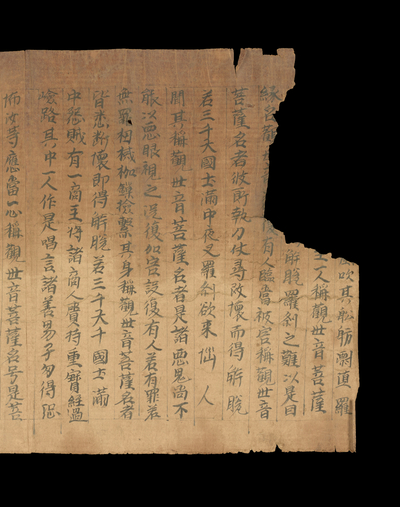 吹其舩舫漂堕羅
人稱觀世音菩薩
解脫羅刹之難以是曰
緣名觀世 復有人臨當被害稱觀世音
菩薩名者彼所執刀仗尋改壞而得解脫
若三千大國土滿中夜叉羅刹欲来惱人
聞其稱觀世音菩薩名者是諸惡鬼尚不
能以惡眼視之况復加害設復有人若有罪若
無罪杻械枷鏁檢繫其身稱觀世音菩薩名者
皆悉断壞即得解脫若三千大千國土滿
中怨賊有一商主将諸商人賫持重寳經過
嶮路其中一人作是唱言諸善男子勿得恐
怖汝等應當一心稱觀世音菩薩名号是菩